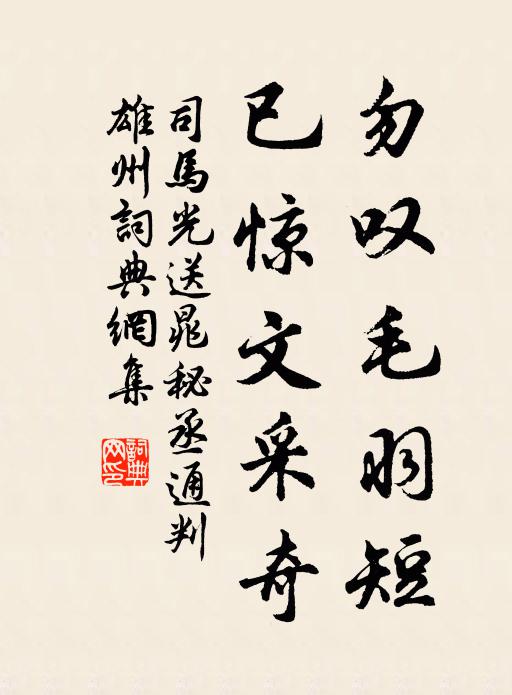 勿叹毛羽短
已惊文采奇
司馬光送晁秘丞通判
雄州詞典網集
詞典網印